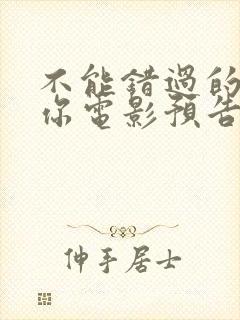 不能錯過的
你電影預告
伸手居士